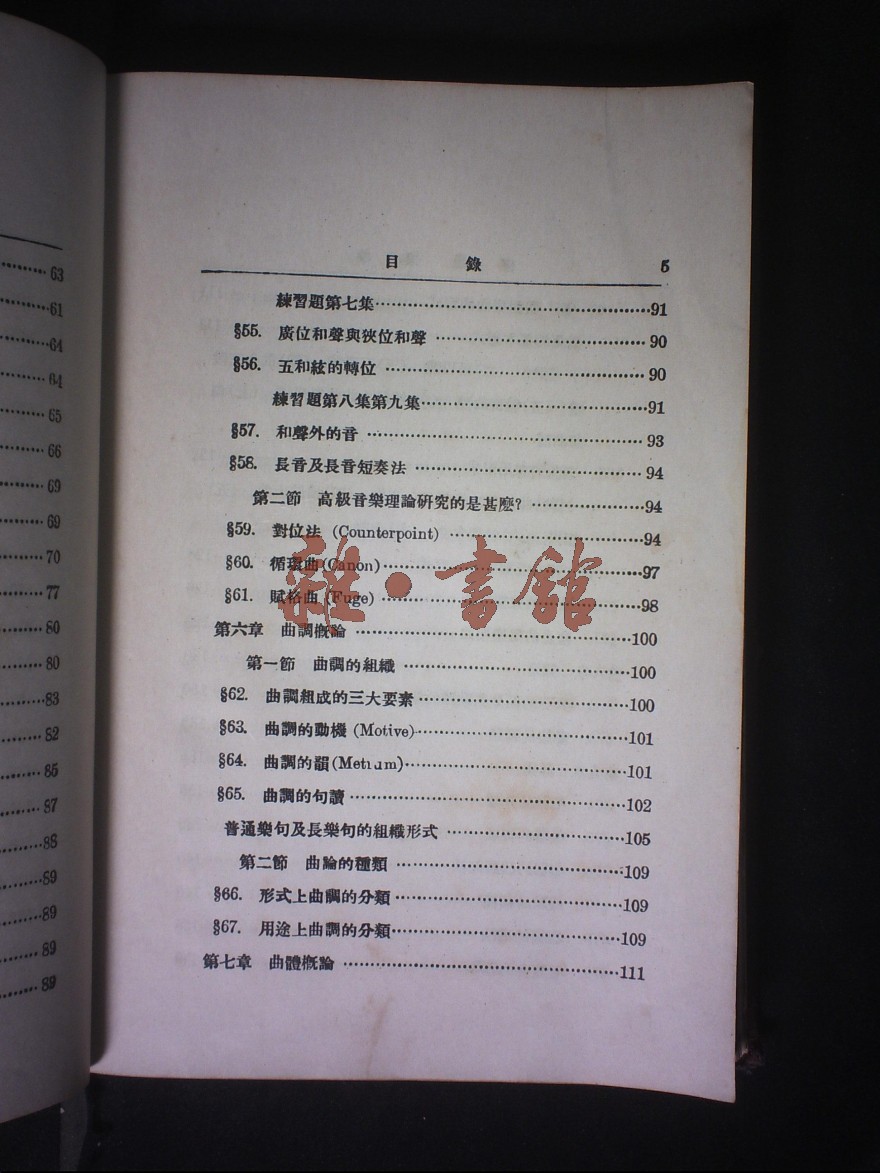 63
61
64
64
65
66
69
69
70
77
80
80
83
82
85
87
88
89
89
89
89
目錄 5
練習題第七集……91
§55. 廣位和聲與狹位和聲……90
§56. 五和絃的轉位……90
練習題第八集第九集……91
§57. 和聲外的音……93
§58. 長音及長音短奏法……94
第二節 高級音樂理論研究的是甚麼?……94
§59. 對位法 (Counterpoint)……94
§60. 循環曲(Canon)……97
§61. 賦格曲 (Fuge)……98
第六章 曲調概論……100
第一節 曲調的組織……100
§62. 曲調組成的三大要素……100
§63. 曲調的動機 (Motive)……101
§64. 曲調的韻(Metium)……101
§65. 曲調的句讀……102
普通樂句及長樂句的組織形式……105
第二節 曲論的種類……109
§66. 形式上曲調的分類……109
§67. 用途上曲調的分類……109
第七章 曲體概論……111
雜·書館